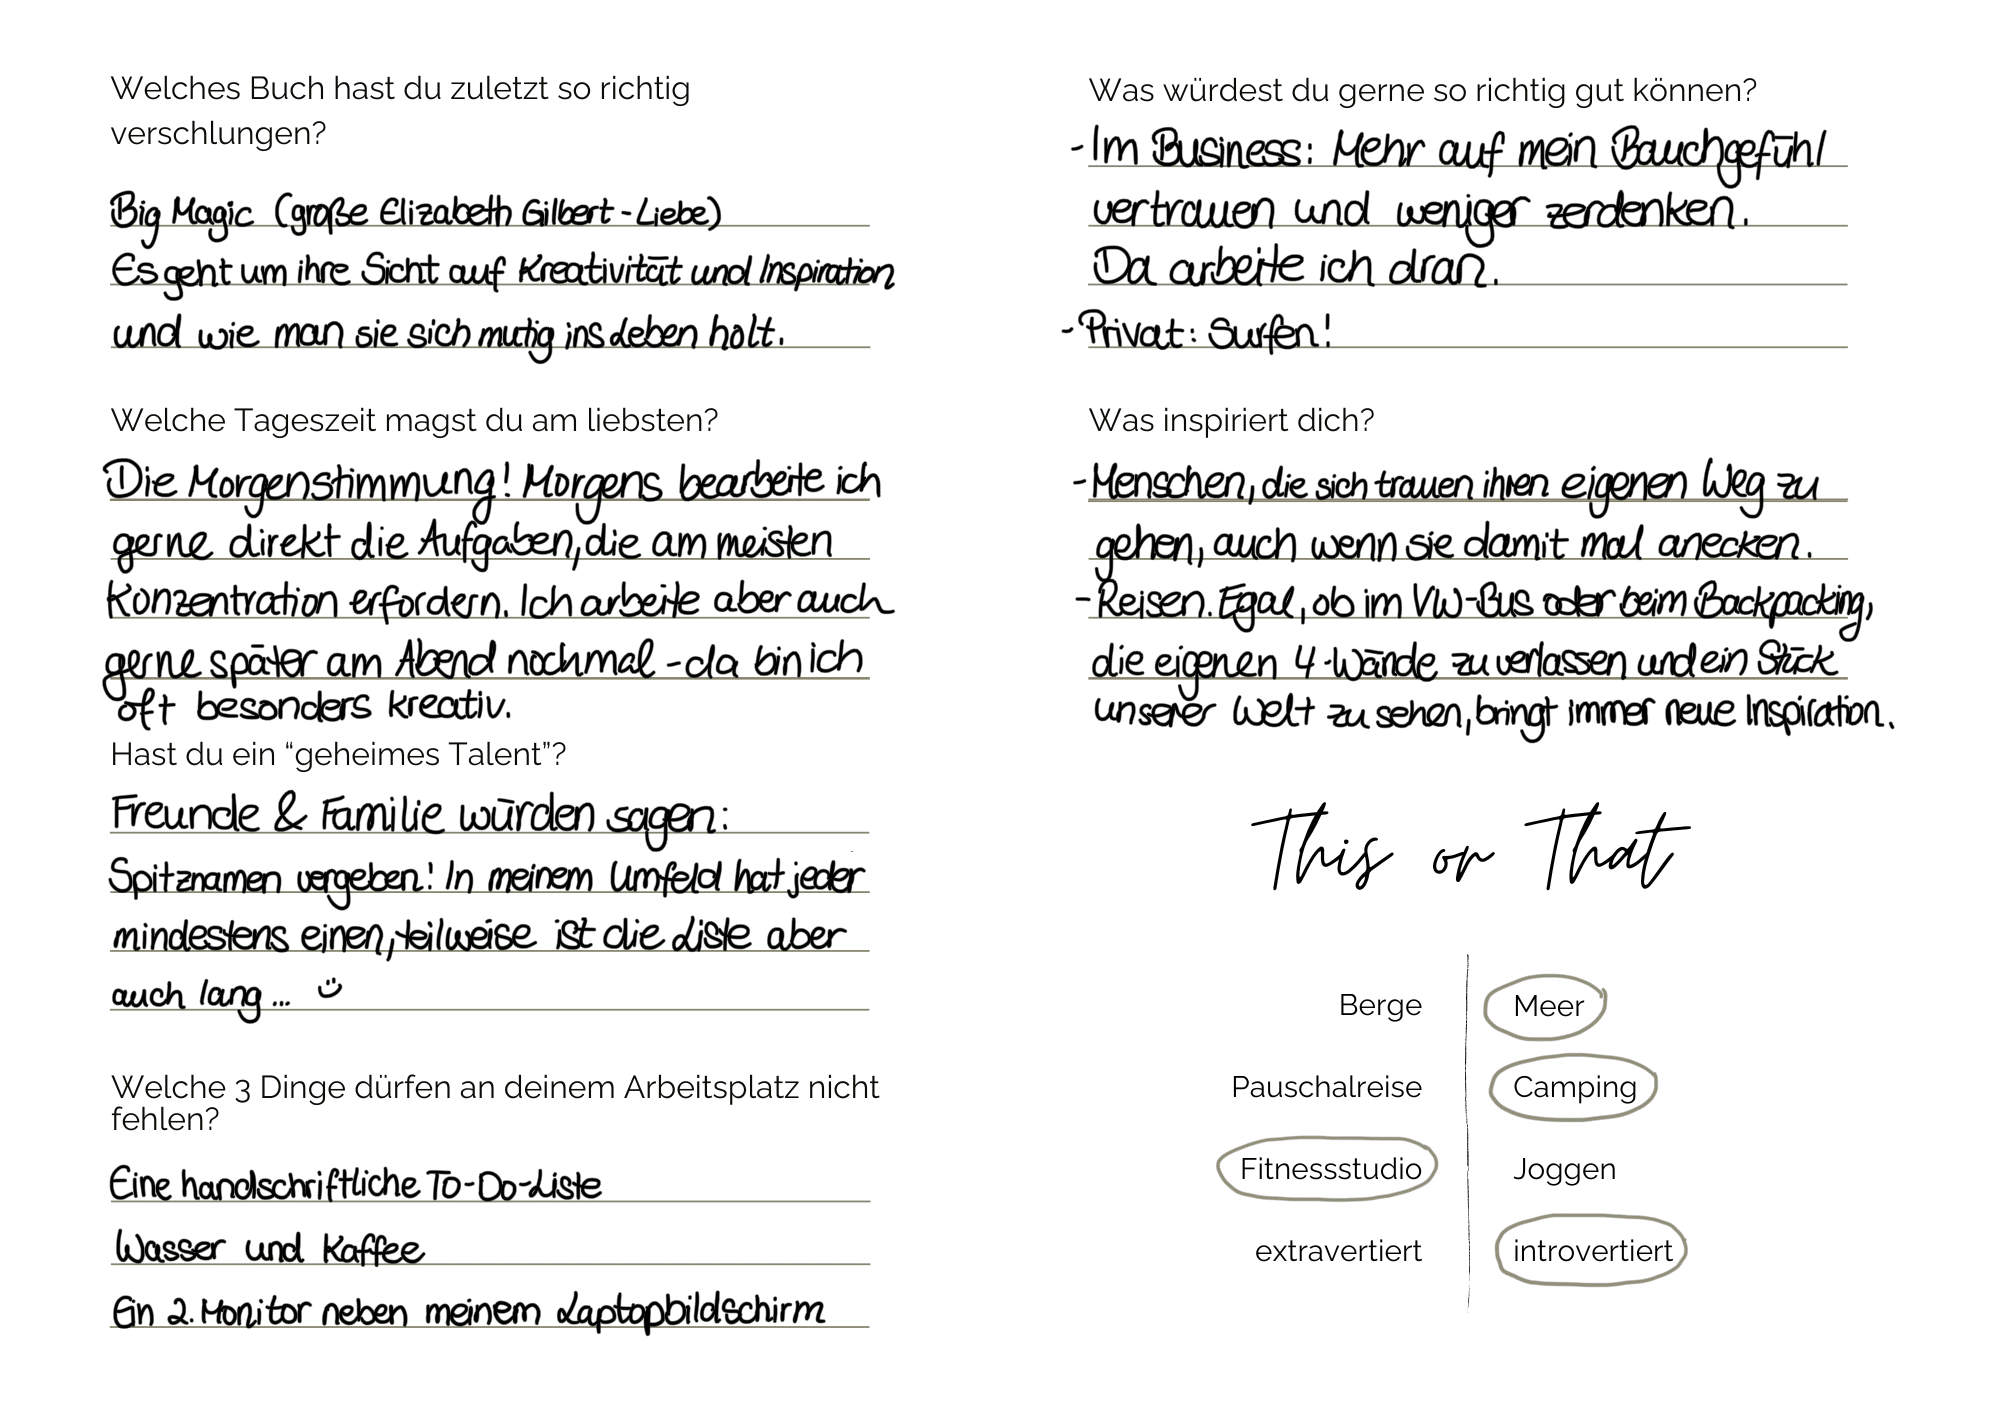 Welches Buch hast du zuletzt so richtig
verschlungen?
Big Magic (große Elizabeth Gilbert-Liebe)
Es geht um ihre Sicht auf Kreativität und Inspiration
und wie man sie sich mutig ins Leben holt.
Welche Tageszeit magst du am liebsten?
Die Morgenstimmung! Morgens bearbeite ich
gerne direkt die Aufgaben, die am meisten
Konzentration erfordern. Ich arbeite aber auch
gerne später am Abend nochmal - da bin ich
oft besonders kreativ.
Hast du ein “geheimes Talent”?
Freunde & Familie würden sagen:
Spitznamen vergeben! In meinem Umfeld hat jeder
mindestens einen, teilweise ist die Liste aber
auch lang... ☺
Welche 3 Dinge dürfen an deinem Arbeitsplatz nicht
fehlen?
Eine handschriftliche To-Do-Liste
Wasser und Kaffee
Ein 2. Monitor neben meinem Laptopbildschirm
Was würdest du gerne so richtig gut können?
- Im Business: Mehr auf mein Bauchgefühl
vertrauen und weniger zerdenken.
Da arbeite ich dran.
- Privat: Surfen!
Was inspiriert dich?
- Menschen, die sich trauen ihren eigenen Weg zu
gehen, auch wenn sie damit mal anecken.
- Reisen. Egal, ob im VW-Bus oder beim Backpacking,
die eigenen 4-Wände zu verlassen und ein Stück
unserer Welt zu sehen, bringt immer neue Inspiration.
This or That
Berge Meer
Pauschalreise Camping
Fitnessstudio Joggen
extravertiert introvertiert